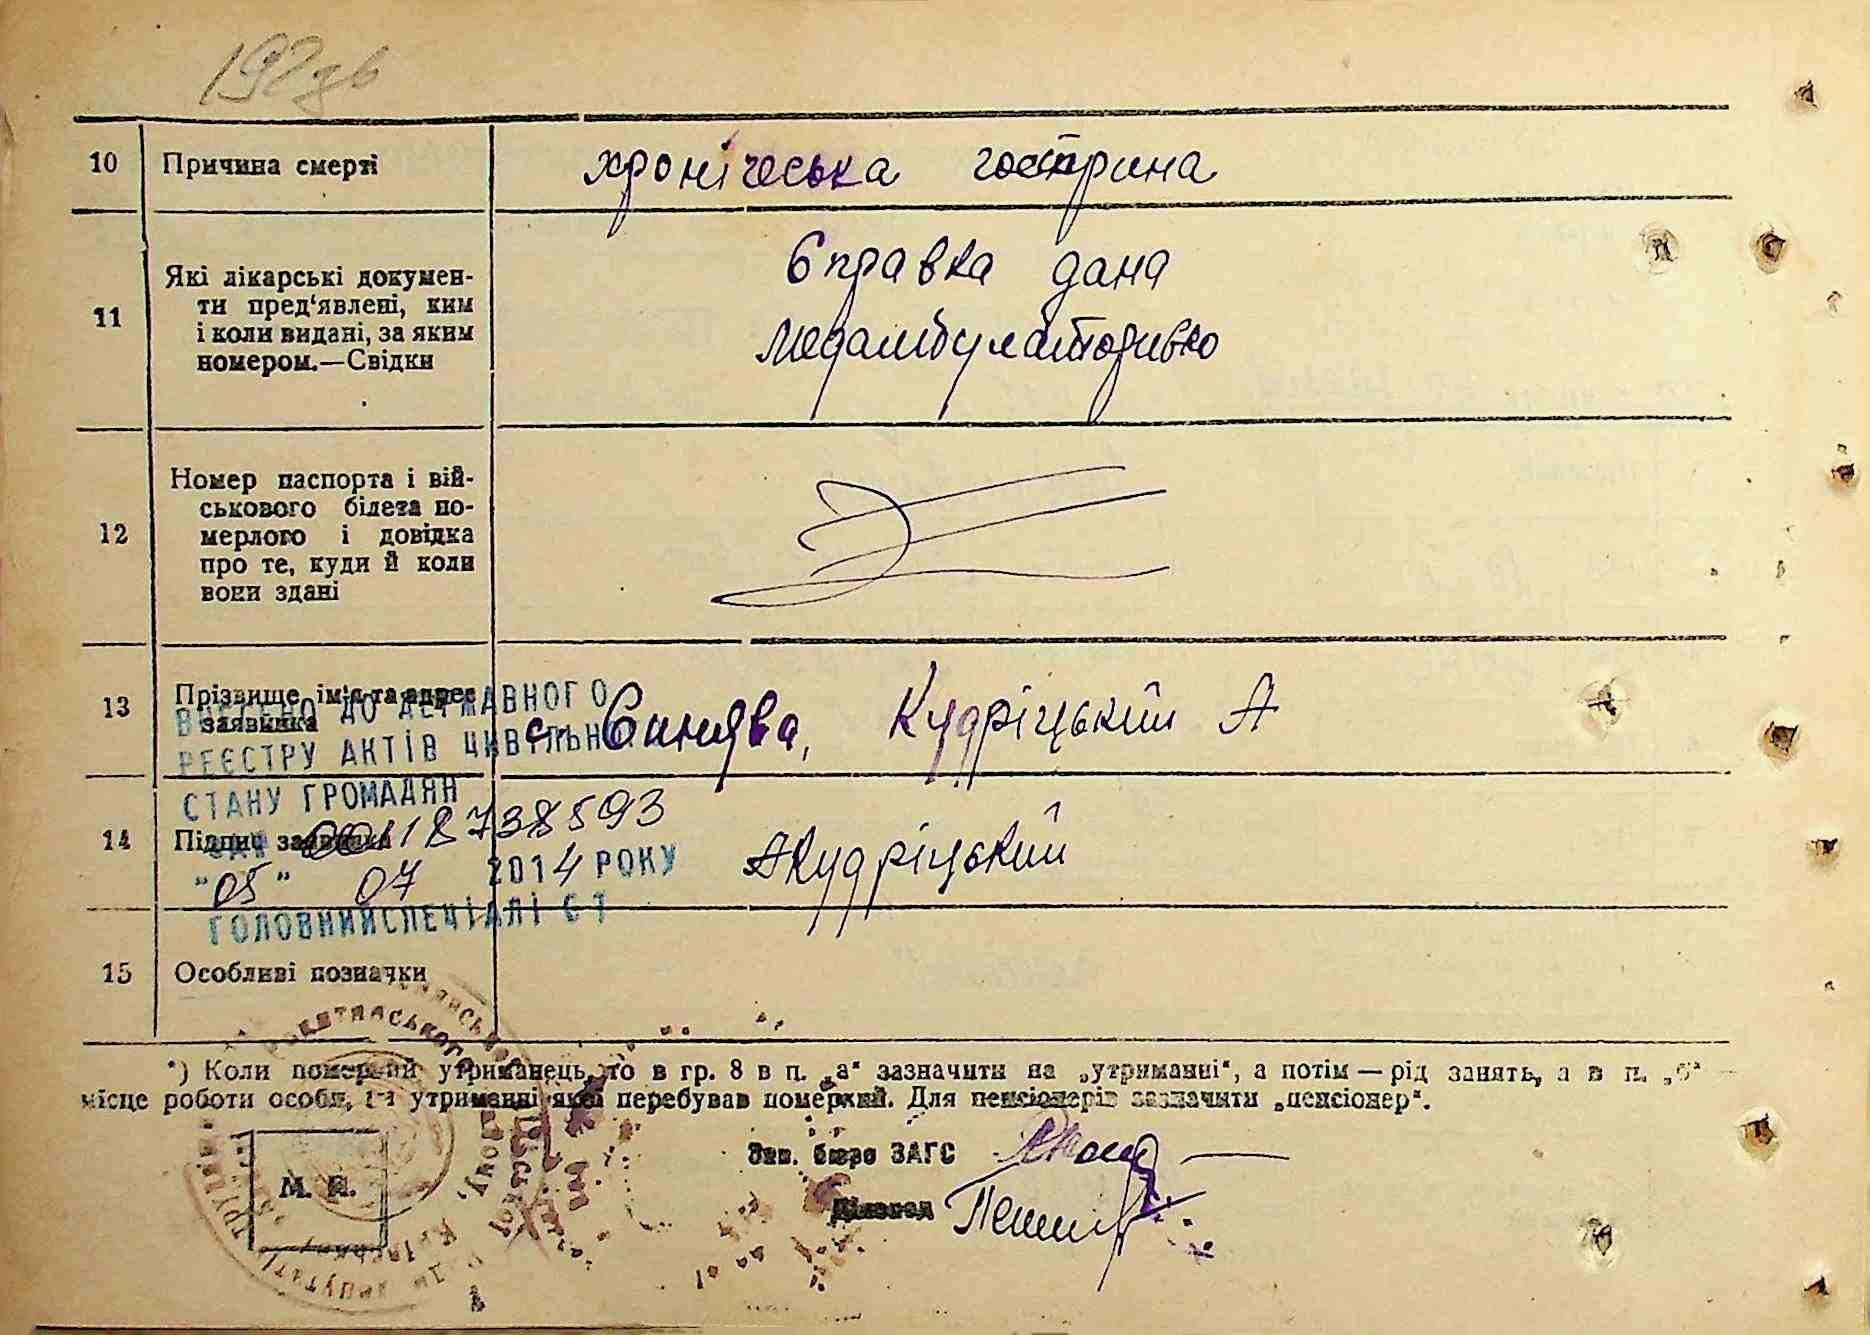 192зв
10 Причина смерті хронічеська гострина
Які лікарські докумен-
ти пред‘явлені, ким
11 і коли видані, за яким
номером.—Свідки
Справка дана
Медамбулаторією
Номер паспорта і вій-
ськового білета по-
12 мерлого і довідка
про те, куди й коли
вони здані
13 Прізвище, ім'я та адрес
заявника
с. Синява, Кудріцький А
ВНЕСЕНО ДО ДЕРЖАВНОГО
РЕЄСТРУ АКТІВ ЦИВІЛЬН
СТАНУ ГРОМАДЯН
14 Підпис заявника АКудріцький
00118738593
"05" 07 2014 РОКУ
ГОЛОВНИЙ СПЕЦІАЛІСТ
15 Особливі позначки
*) Коли померлий утриманець, то в гр. 8 в п. „а“ зазначити на „утриманні“, а потім — рід занять, а в п. „б“ —
місце роботи особи, на утриманні якої перебував померлий. Для пенсіонерів зазначити „пенсіонер“.
Зав. бюро ЗАГС
Діловод
М. П.